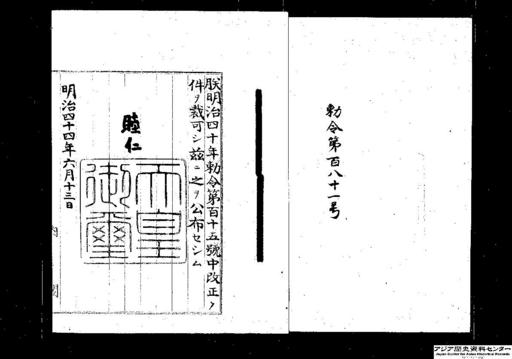 勅令第百八十一号
朕明治四十年勅令第百十五號中改正ノ
件ヲ裁可シ茲ニ之ヲ公布セシム
睦仁
天皇
御璽
明治四十四年六月十三日
内閣
アジア歴史資料センター
Japan Center for Asian Historical Records